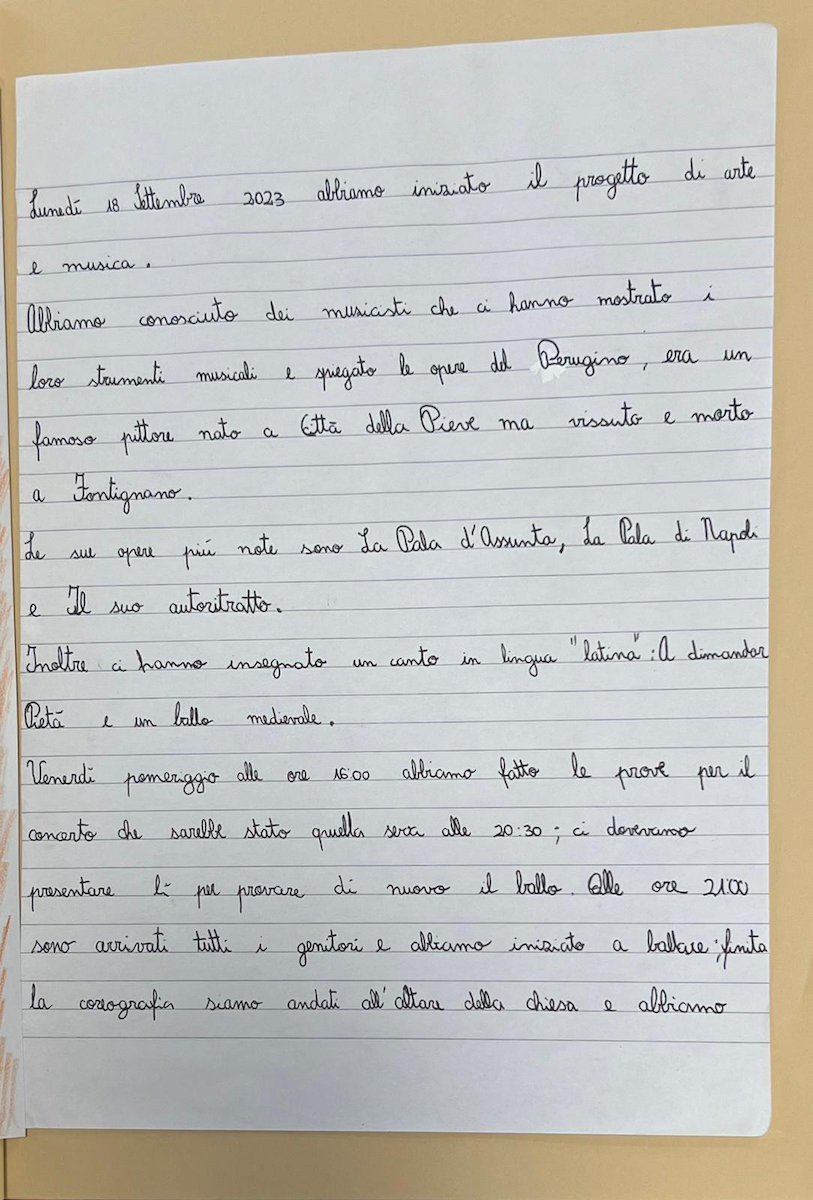 Lunedí 18 Settembre 2023 abbiamo iniziato il progetto di arte
e musica.
Abbiamo conosciuto dei musicisti che ci hanno mostrato i
loro strumenti musicali e spiegato le opere del Perugino, era un
famoso pittore nato a Città della Pieve ma vissuto e morto
a Fontignano.
Le sue opere piú note sono La Pala d'Assunta, La Pala di Napoli
e Il suo autoritratto.
Inoltre ci hanno insegnato un canto in lingua "latina": A dimandar
Pietà e un ballo medievale.
Venerdí pomeriggio alle ore 16:00 abbiamo fatto le prove per il
concerto che sarebbe stato quella sera alle 20:30; ci dovevamo
presentare lí per provare di nuovo il ballo. Alle ore 21:00
sono arrivati tutti i genitori e abbiamo iniziato a ballare; finita
la coreografia siamo andati all'altare della chiesa e abbiamo